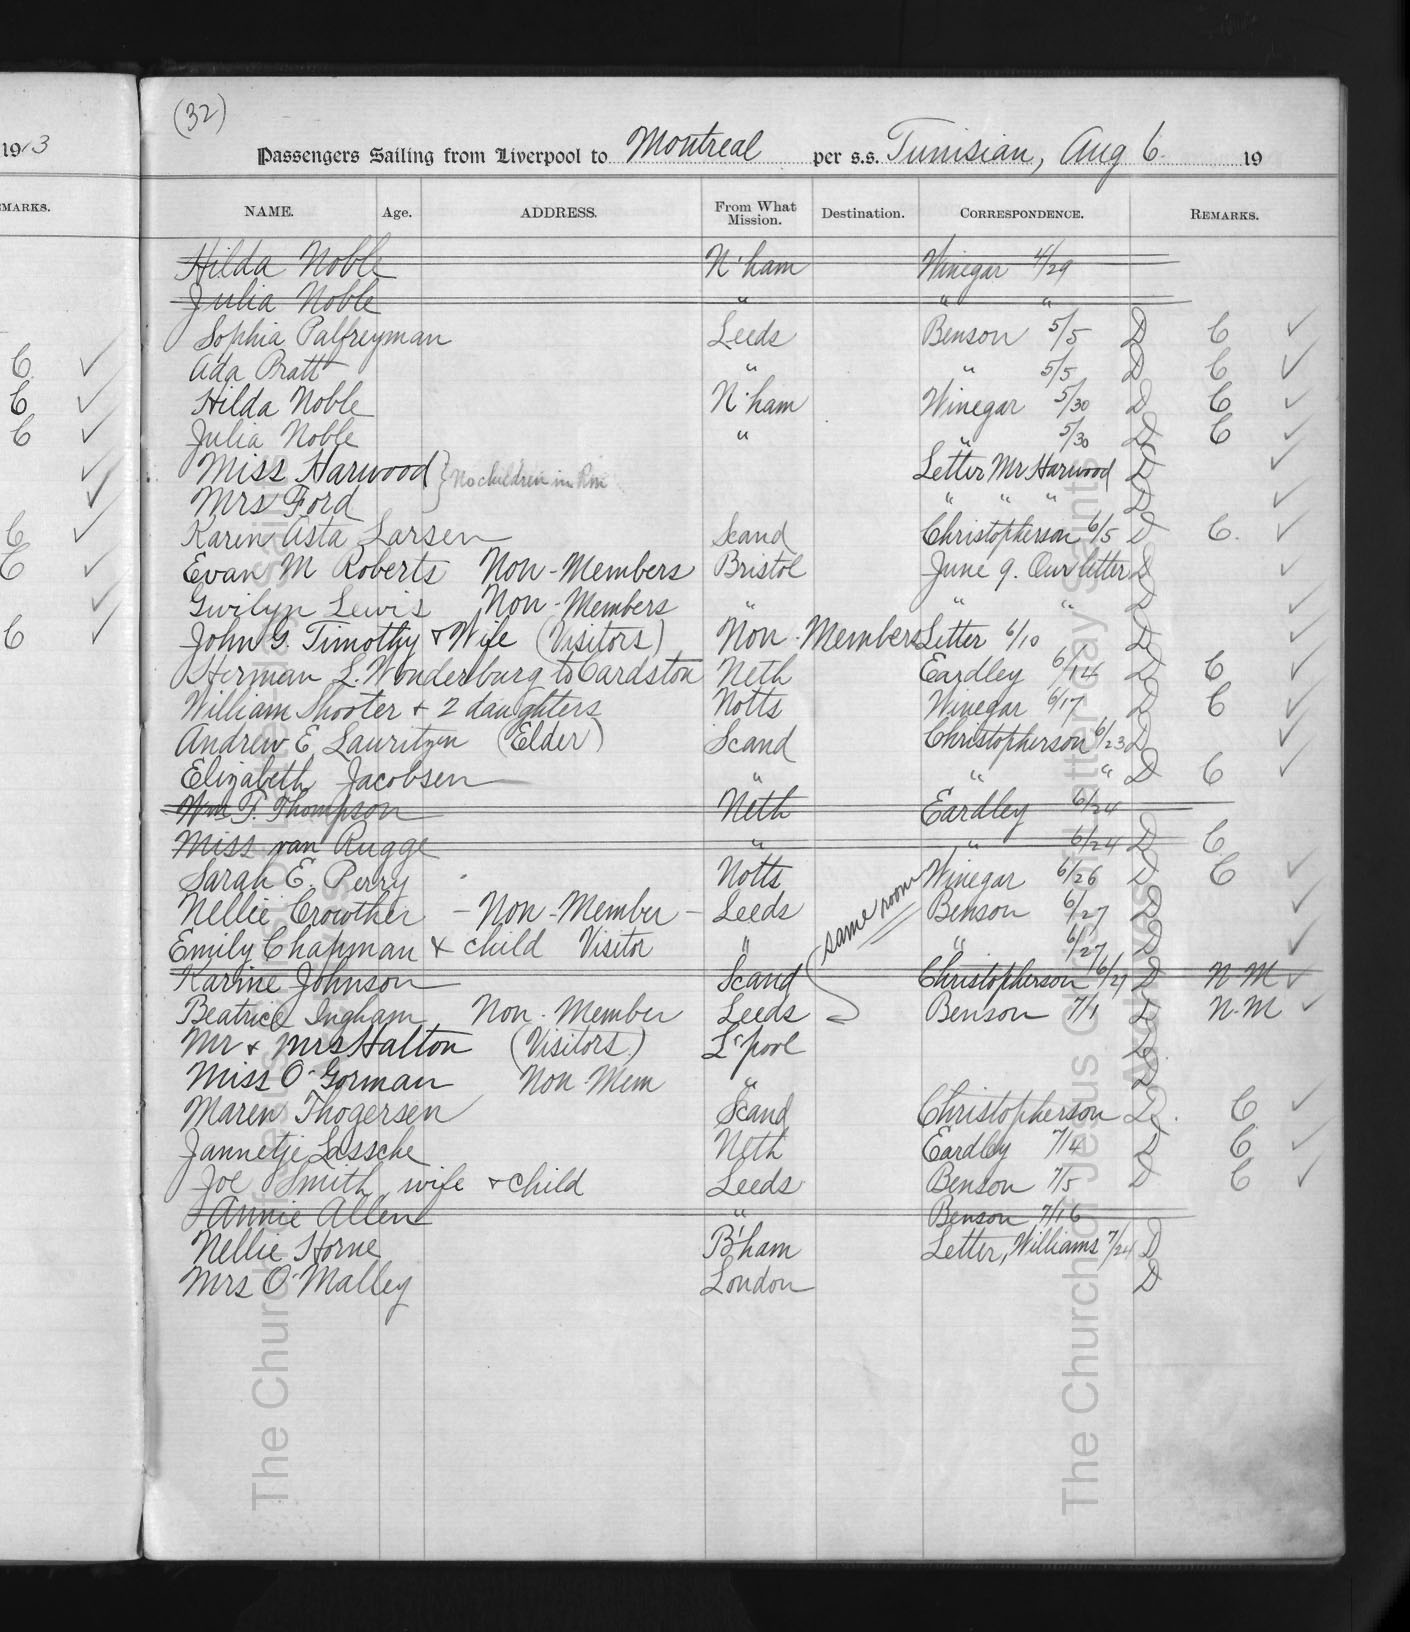 (32)
1913
Passengers Sailing from Liverpool to Montreal per s.s. Tunisian, Aug 6. 19
MARKS.
NAME. Age. ADDRESS. From What Mission. Destination. CORRESPONDENCE. REMARKS.
Hilda Noble N'ham Winegar 4/29
Julia Noble " " "
Sophia Palfreyman Leeds Benson 5/5 D C ✓
C ✓ Ada Pratt " " 5/5 D C ✓
C ✓ Hilda Noble N'ham Winegar 5/30 D C ✓
C ✓ Julia Noble " " 5/30 D C ✓
✓ Miss Harwood } No children in Rm Letter Mr Harwood D ✓
✓ Mrs Ford " " " D ✓
C ✓ Karen Asta Larsen Scand Christopherson 6/5 D C. ✓
C ✓ Evan M Roberts Non-Members Bristol June 9. Our letter D ✓
✓ Gwilyn Lewis Non-Members " " " D ✓
C ✓ John G. Timothy & Wife (Visitors) Non-Members Letter 6/10 D ✓
Herman L. Wonderburg to Cardston Neth Eardley 6/14 D C ✓
William Shooter + 2 daughters Notts Winegar 6/17 D C ✓
Andrew E. Lauritzen (Elder) Scand Christopherson 6/23 D ✓
Elizabeth Jacobsen " " " D C ✓
Wm F. Thompson Neth Eardley 6/24
Miss van Rugge " " 6/24 D C
Sarah E. Perry Notts Winegar 6/26 D C ✓
Nellie Crowther - Non-Member - Leeds same room Benson 6/27 D ✓
Emily Chapman & child Visitor " " 6/27 D ✓
Karine Johnson Scand Christopherson 6/27 D N-M ✓
Beatrice Ingham Non-Member Leeds Benson 7/1 D N-M ✓
Mr & Mrs Halton (Visitors) L'pool D
Miss O'Gorman Non-Mem " D
Maren Thogersen Scand Christopherson D. C ✓
Jannetje Lassche Neth Eardley 7/4 D C ✓
Joe Smith, wife & child Leeds Benson 7/5 D C ✓
Annie Allen " Benson 7/16
Nellie Horne B'ham Letter, Williams 7/24 D
Mrs O'Malley London D